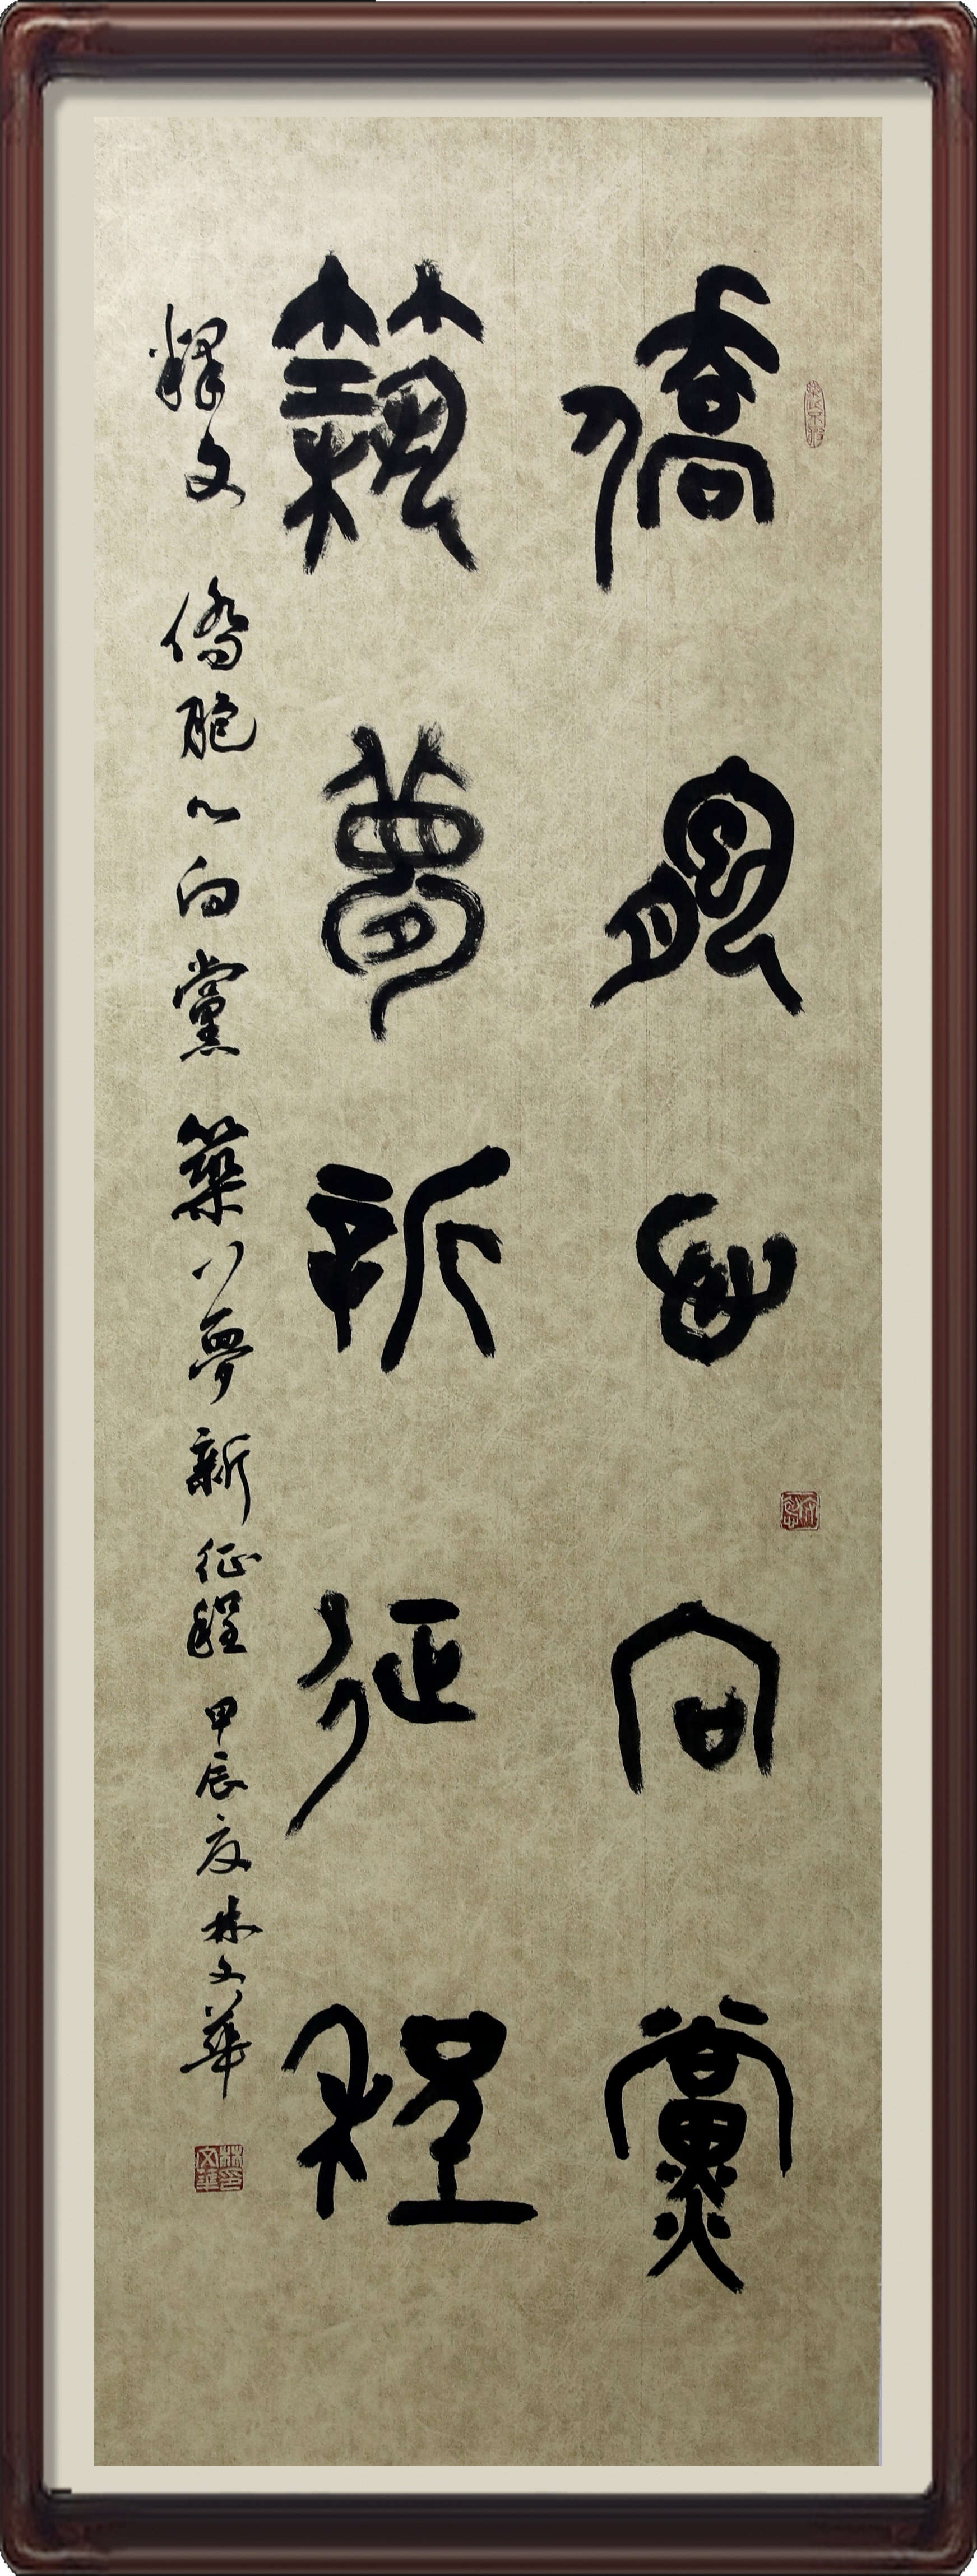 僑胞心向黨
築夢新征程
釋文 僑胞心向黨 築夢新征程 甲辰夏 林文華
林文華印